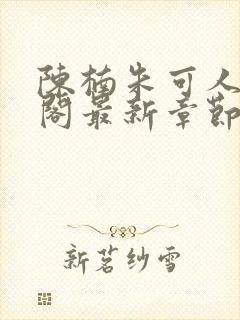 陳楠朱可人
閣最新章節
新茗纱雪